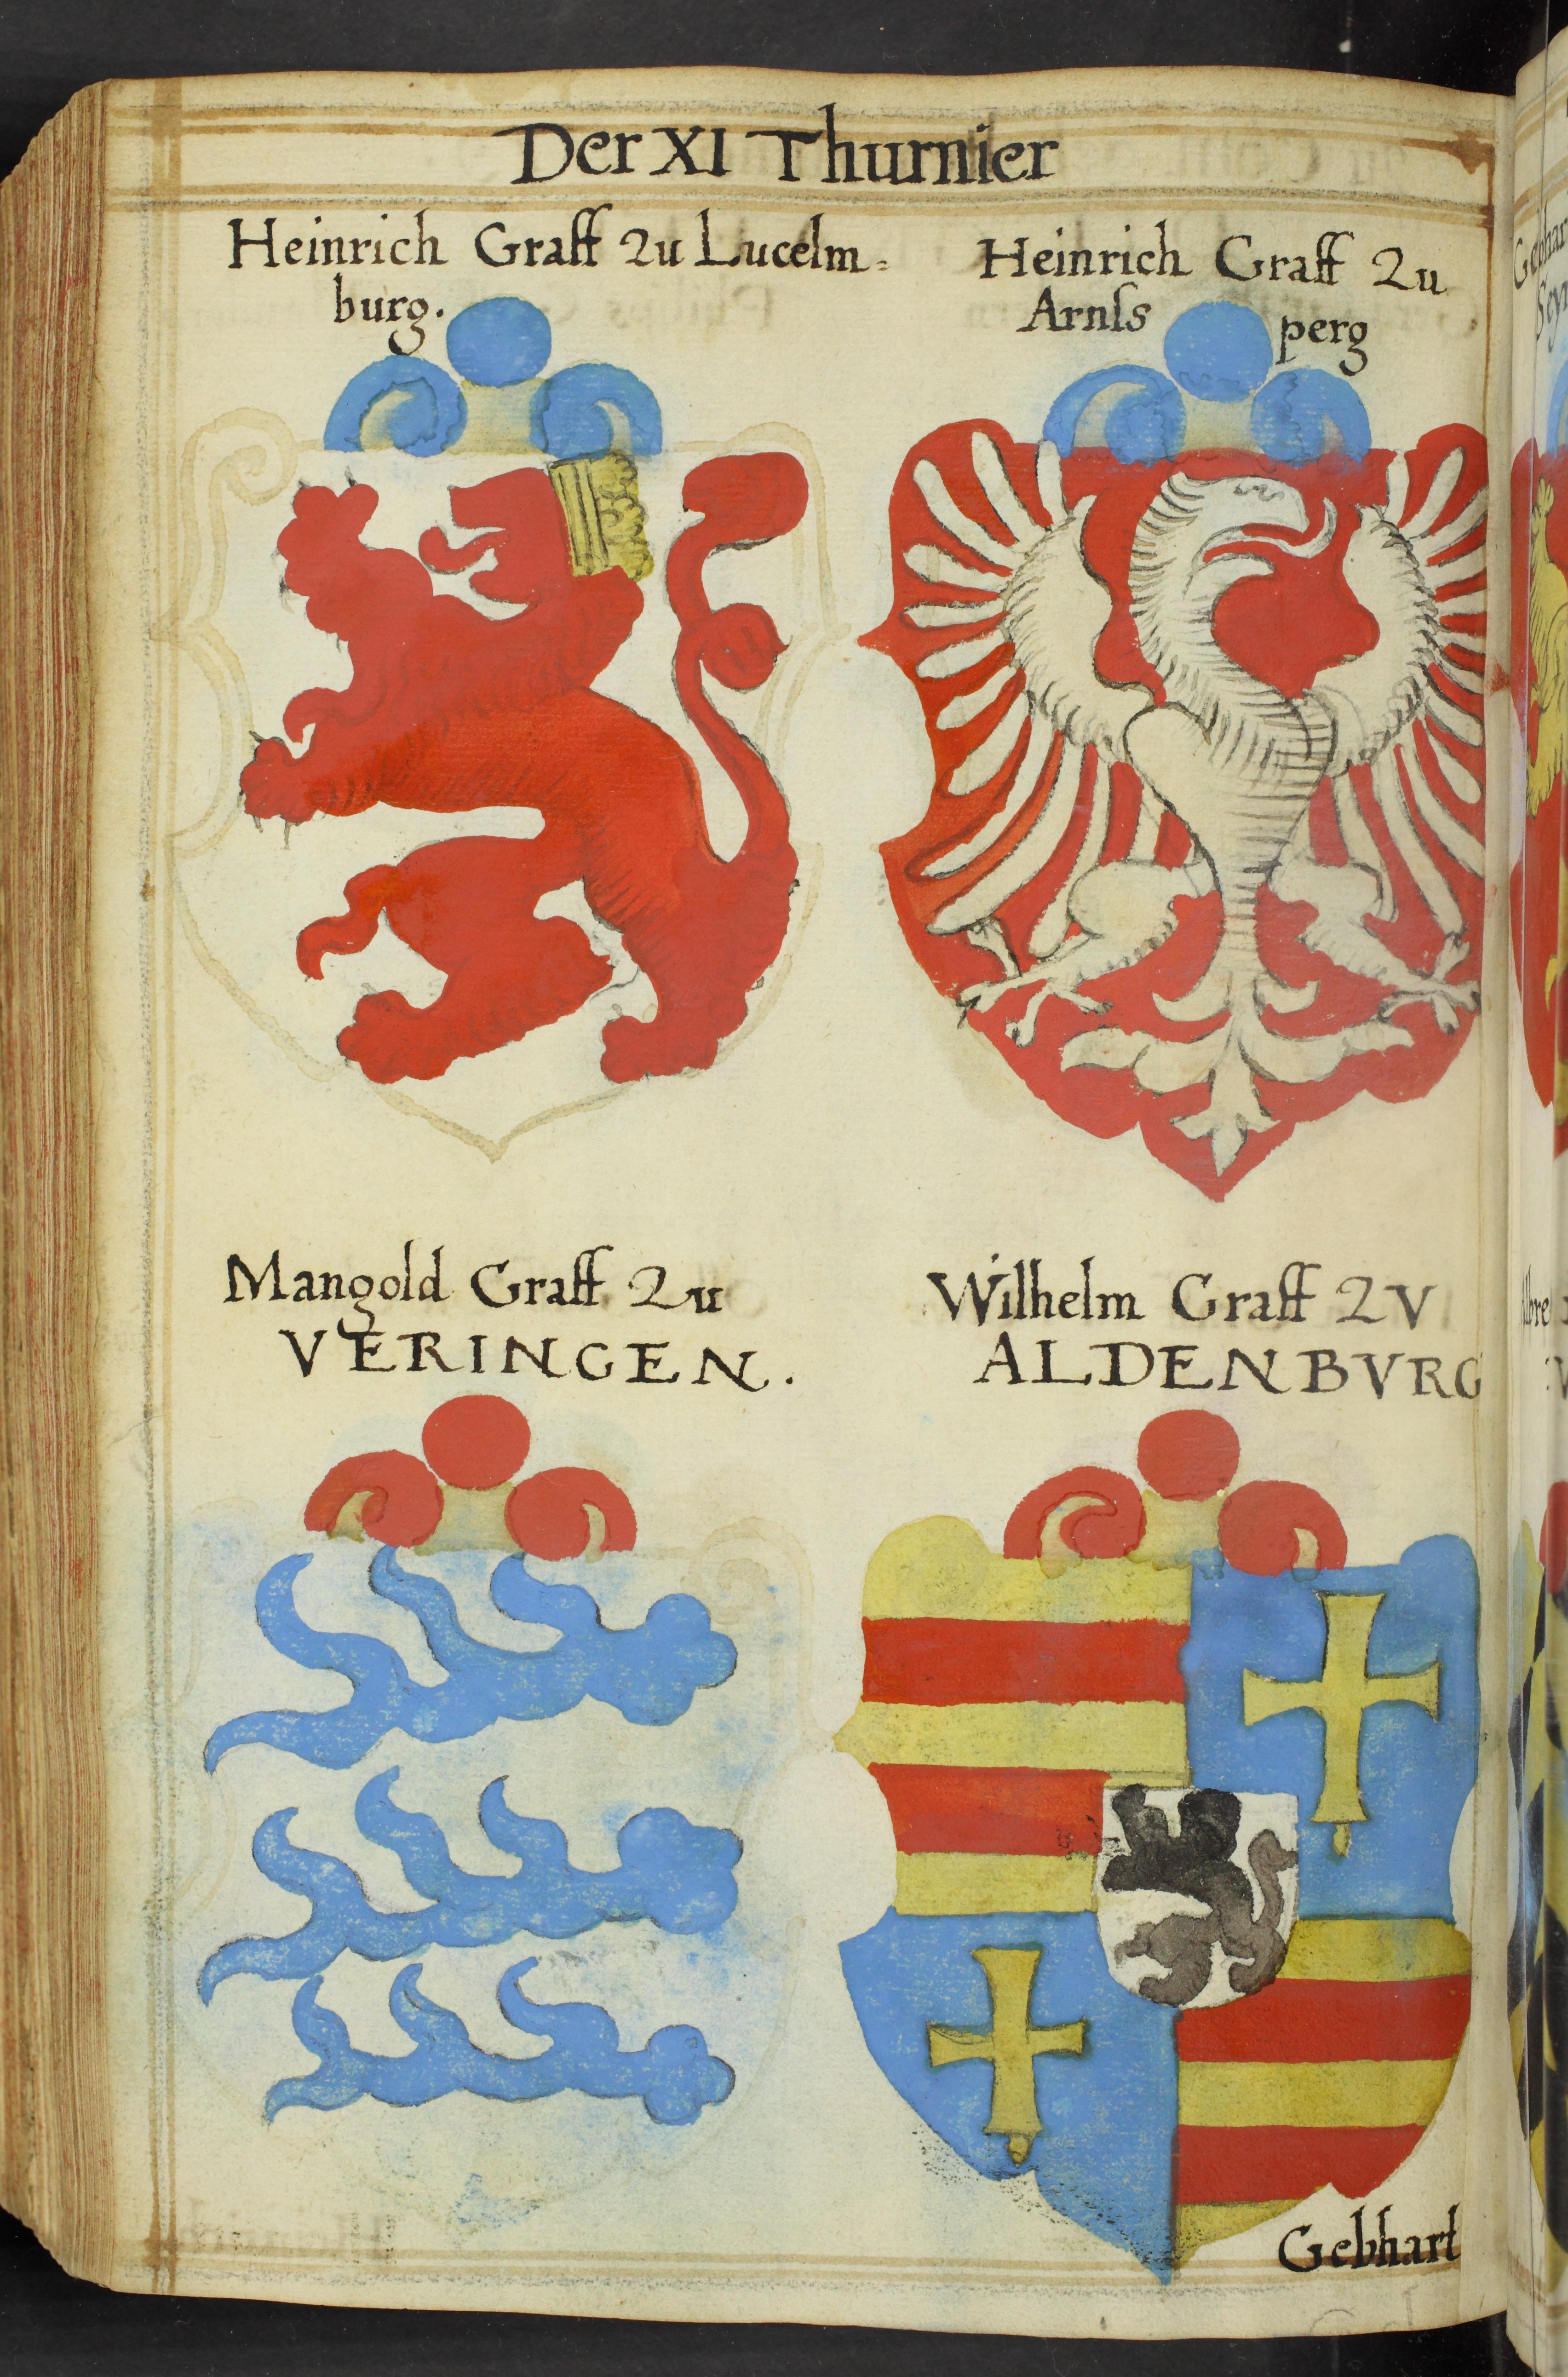 Der XI Thurnier
Heinrich Graff zu Lucelm=
burg.
Heinrich Graff zu
Arnls perg
Mangold Graff zu
VERINGEN.
Wilhelm Graff zV
ALDENBVRG
Gebhart